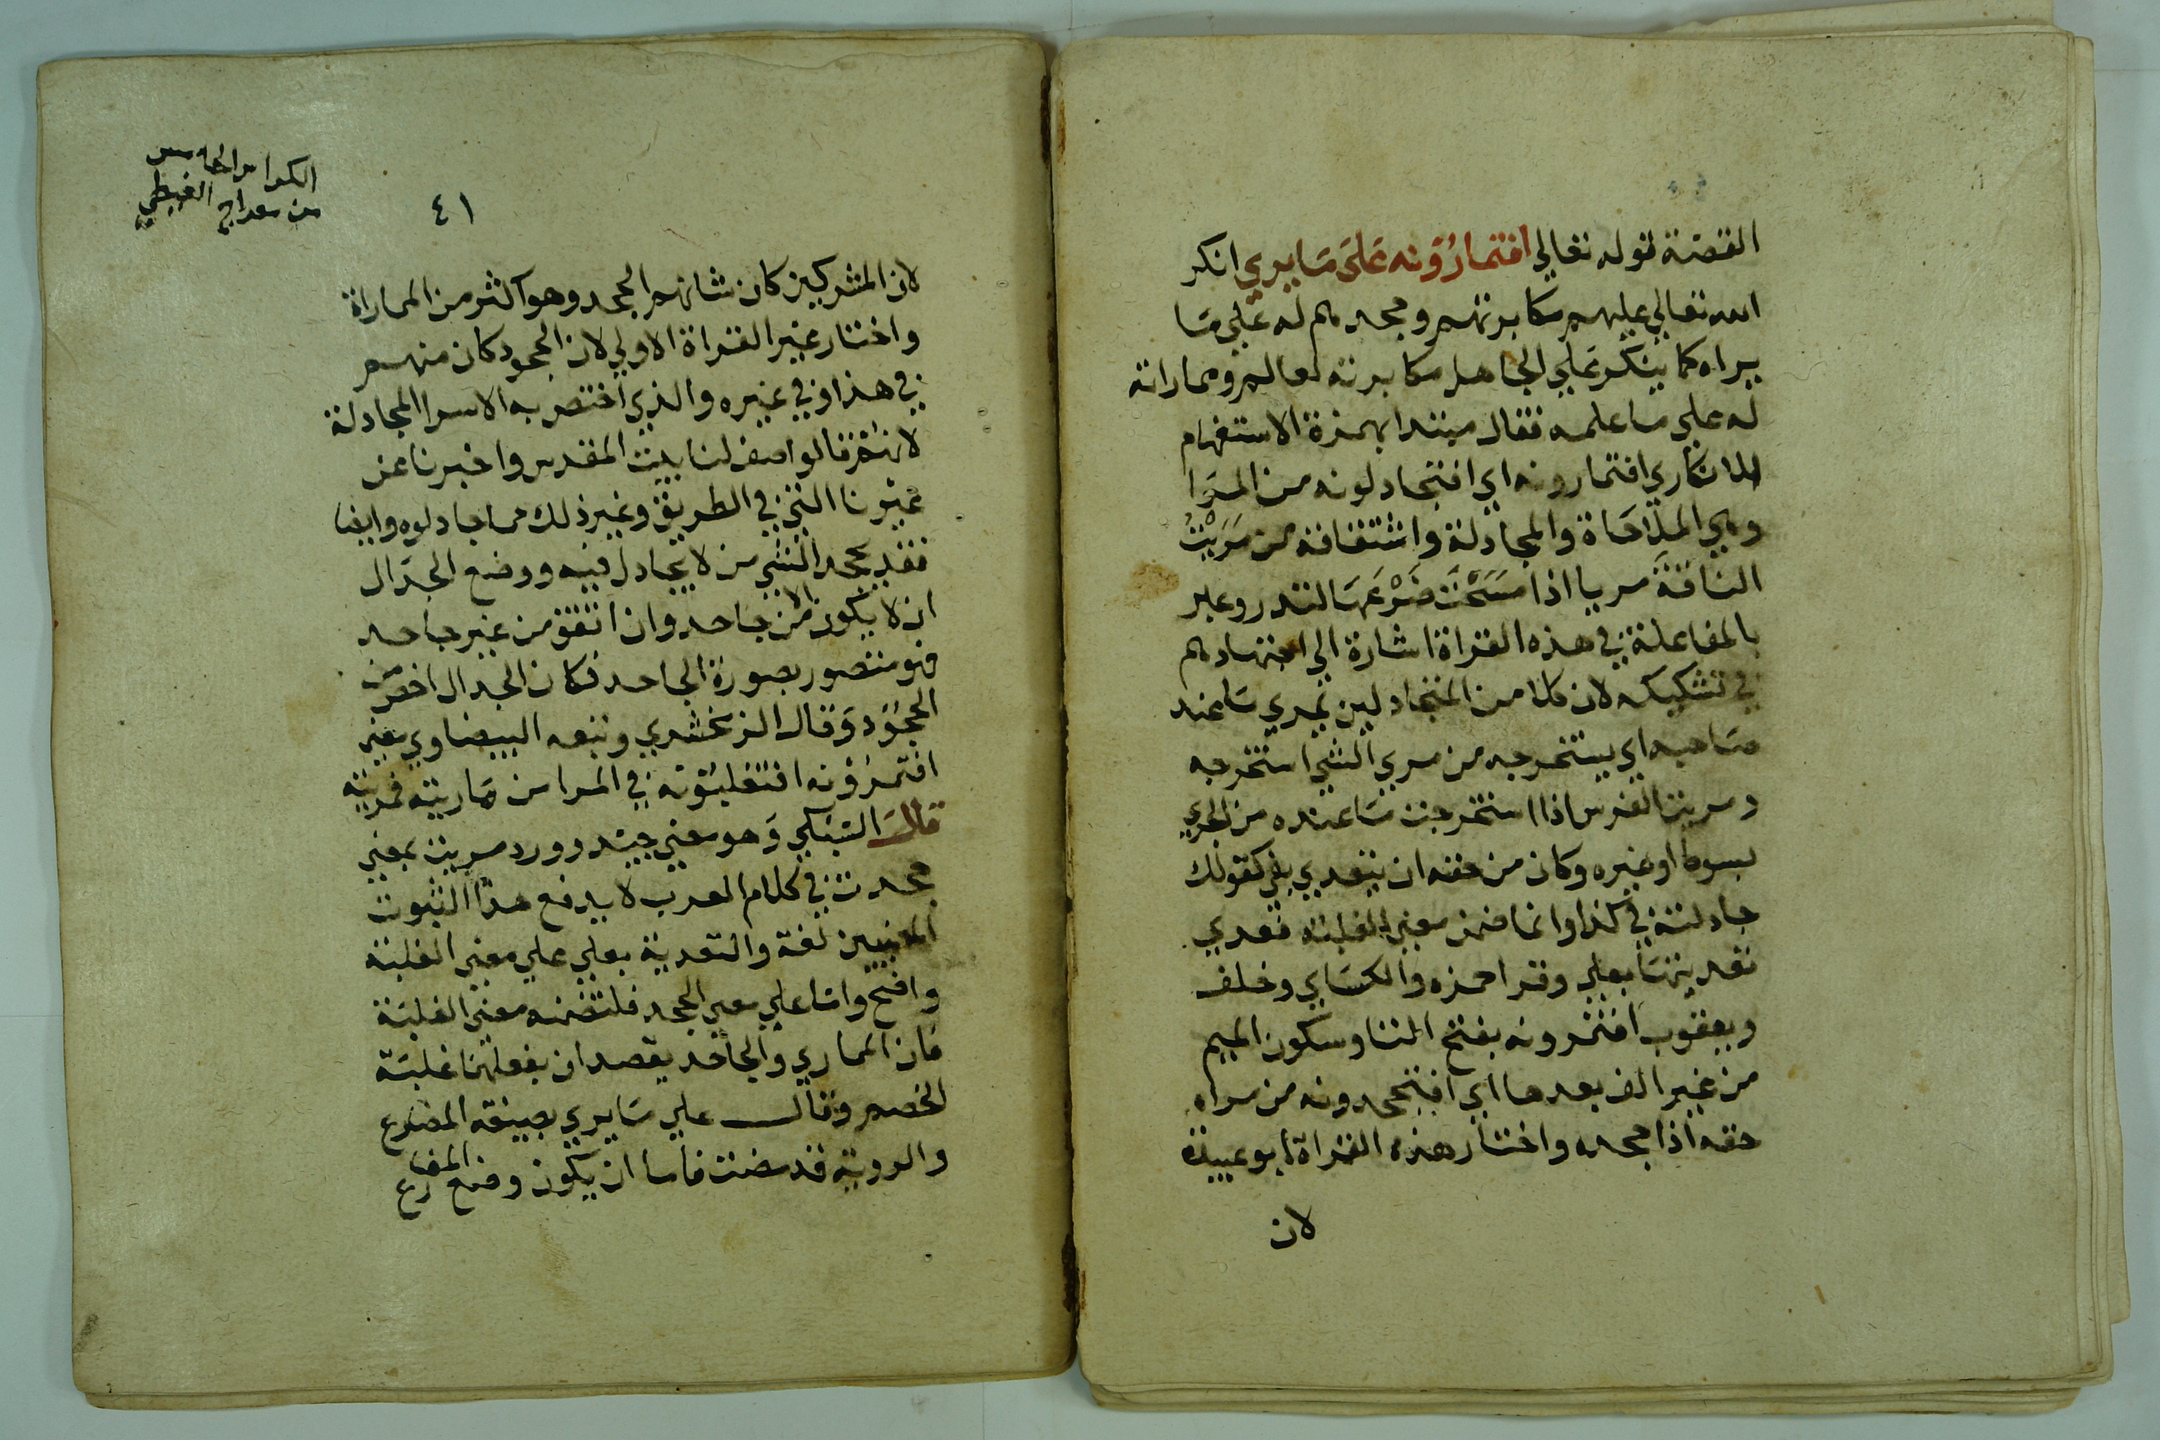 القصة قوله تعالي افتمارُونه عَلَى مَا يري انكر
الله تعالي عليهم مكابرتهم وجحدهم له عَلي مَا
يراه كما ينكر عَلي الجاهل مكابرته لعالم ومماراته
له علي ما علمه فقال مبتدا بهمزة الاستفهام
الانكاري افتمارونه اي افتجادلونه من المرا
وهي الملاحاة والمجادلة واشتقاقه من مَرَيْتُ
الناقةَ مريا اذا مسَحْتَ ضَرْعَهَا لتدر وعبر
بالمفاعلة في هذه القراة اشارة الي اجتهادهم
في تشكيكه لان كلا من المتجادلين يمري مَا عند
صَاحبه اي يستخرجه من مري الشي استخرجه
ومريت الفرس اذا استخرجت مَا عنده من الجري
بسوط او غيره وكان من حقه ان يتعدي بفي كقولك
جادلته في كذا وانما ضمن معني الغلبة فعدي
تعديتهَا بعلي وقرا حمزه والكسَاي وخلف
ويعقوب افتمرونه بفتح التا وسكون الميم
من غير الف بعدها اي افتجحدونه من مراه
حقه اذا جحده واختار هذه القراة ابو عبيدة
لان
الكراس الخامس
من معراج الغيطي
٤١
لان المشركين كان شانهم الجحد وهو اكثر من المماراة
واختار غير القراة الاولي لان الجحود كان منهم
في هذا وفي غيره والذي اختص به الاسرا المجادلة
لانهم قالوا صف لنا بيت المقدس واخبرنا عن
عيرنا التي في الطريق وغير ذلك مما جادلوه وايضا
فقد يجحد الشي من لا يجادل فيه ووضع الجدَال
ان لا يكون الا من جاحد وان اتفق من غير جاحد
فهو متصور بصورة الجاحد فكان الجدال اخص من
الجحُود وَقال الزمخشري وتبعه البيضاوي معني
افتمرُونه افتغلبُونه في المرا من مَاريته فمريته
قال السّبْكي وَهو معني جيّد وورد مريت بمعني
جحدت في كلام العرب لا يدفع هذا الثبوت
المعنيين لغة والتعدية بعلي علي معني الغلبة
واضح وامّا علي معني الجحد فلتضمنه معني الغلبَة
فان المماري والجاحد يقصدان بفعلهما غلبَة
الخصم وقال علي مَا يري بصيغة المضارع
والروية قد مضت فاما ان يكون وضع المضارع